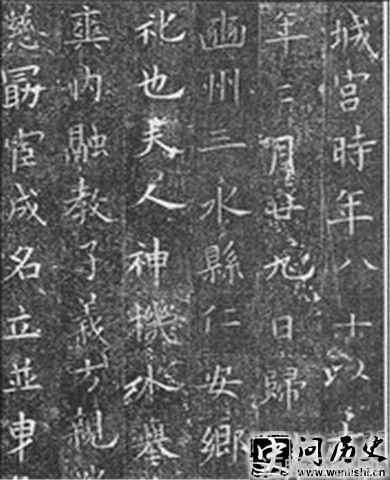 城宮時年八十以
年三月廿九日歸
豳州三水縣仁安鄉
礼也夫人神機外舉
爽内融教子義方親
慈勗宦成名立並
史 问历史
www.wenlishi.cn